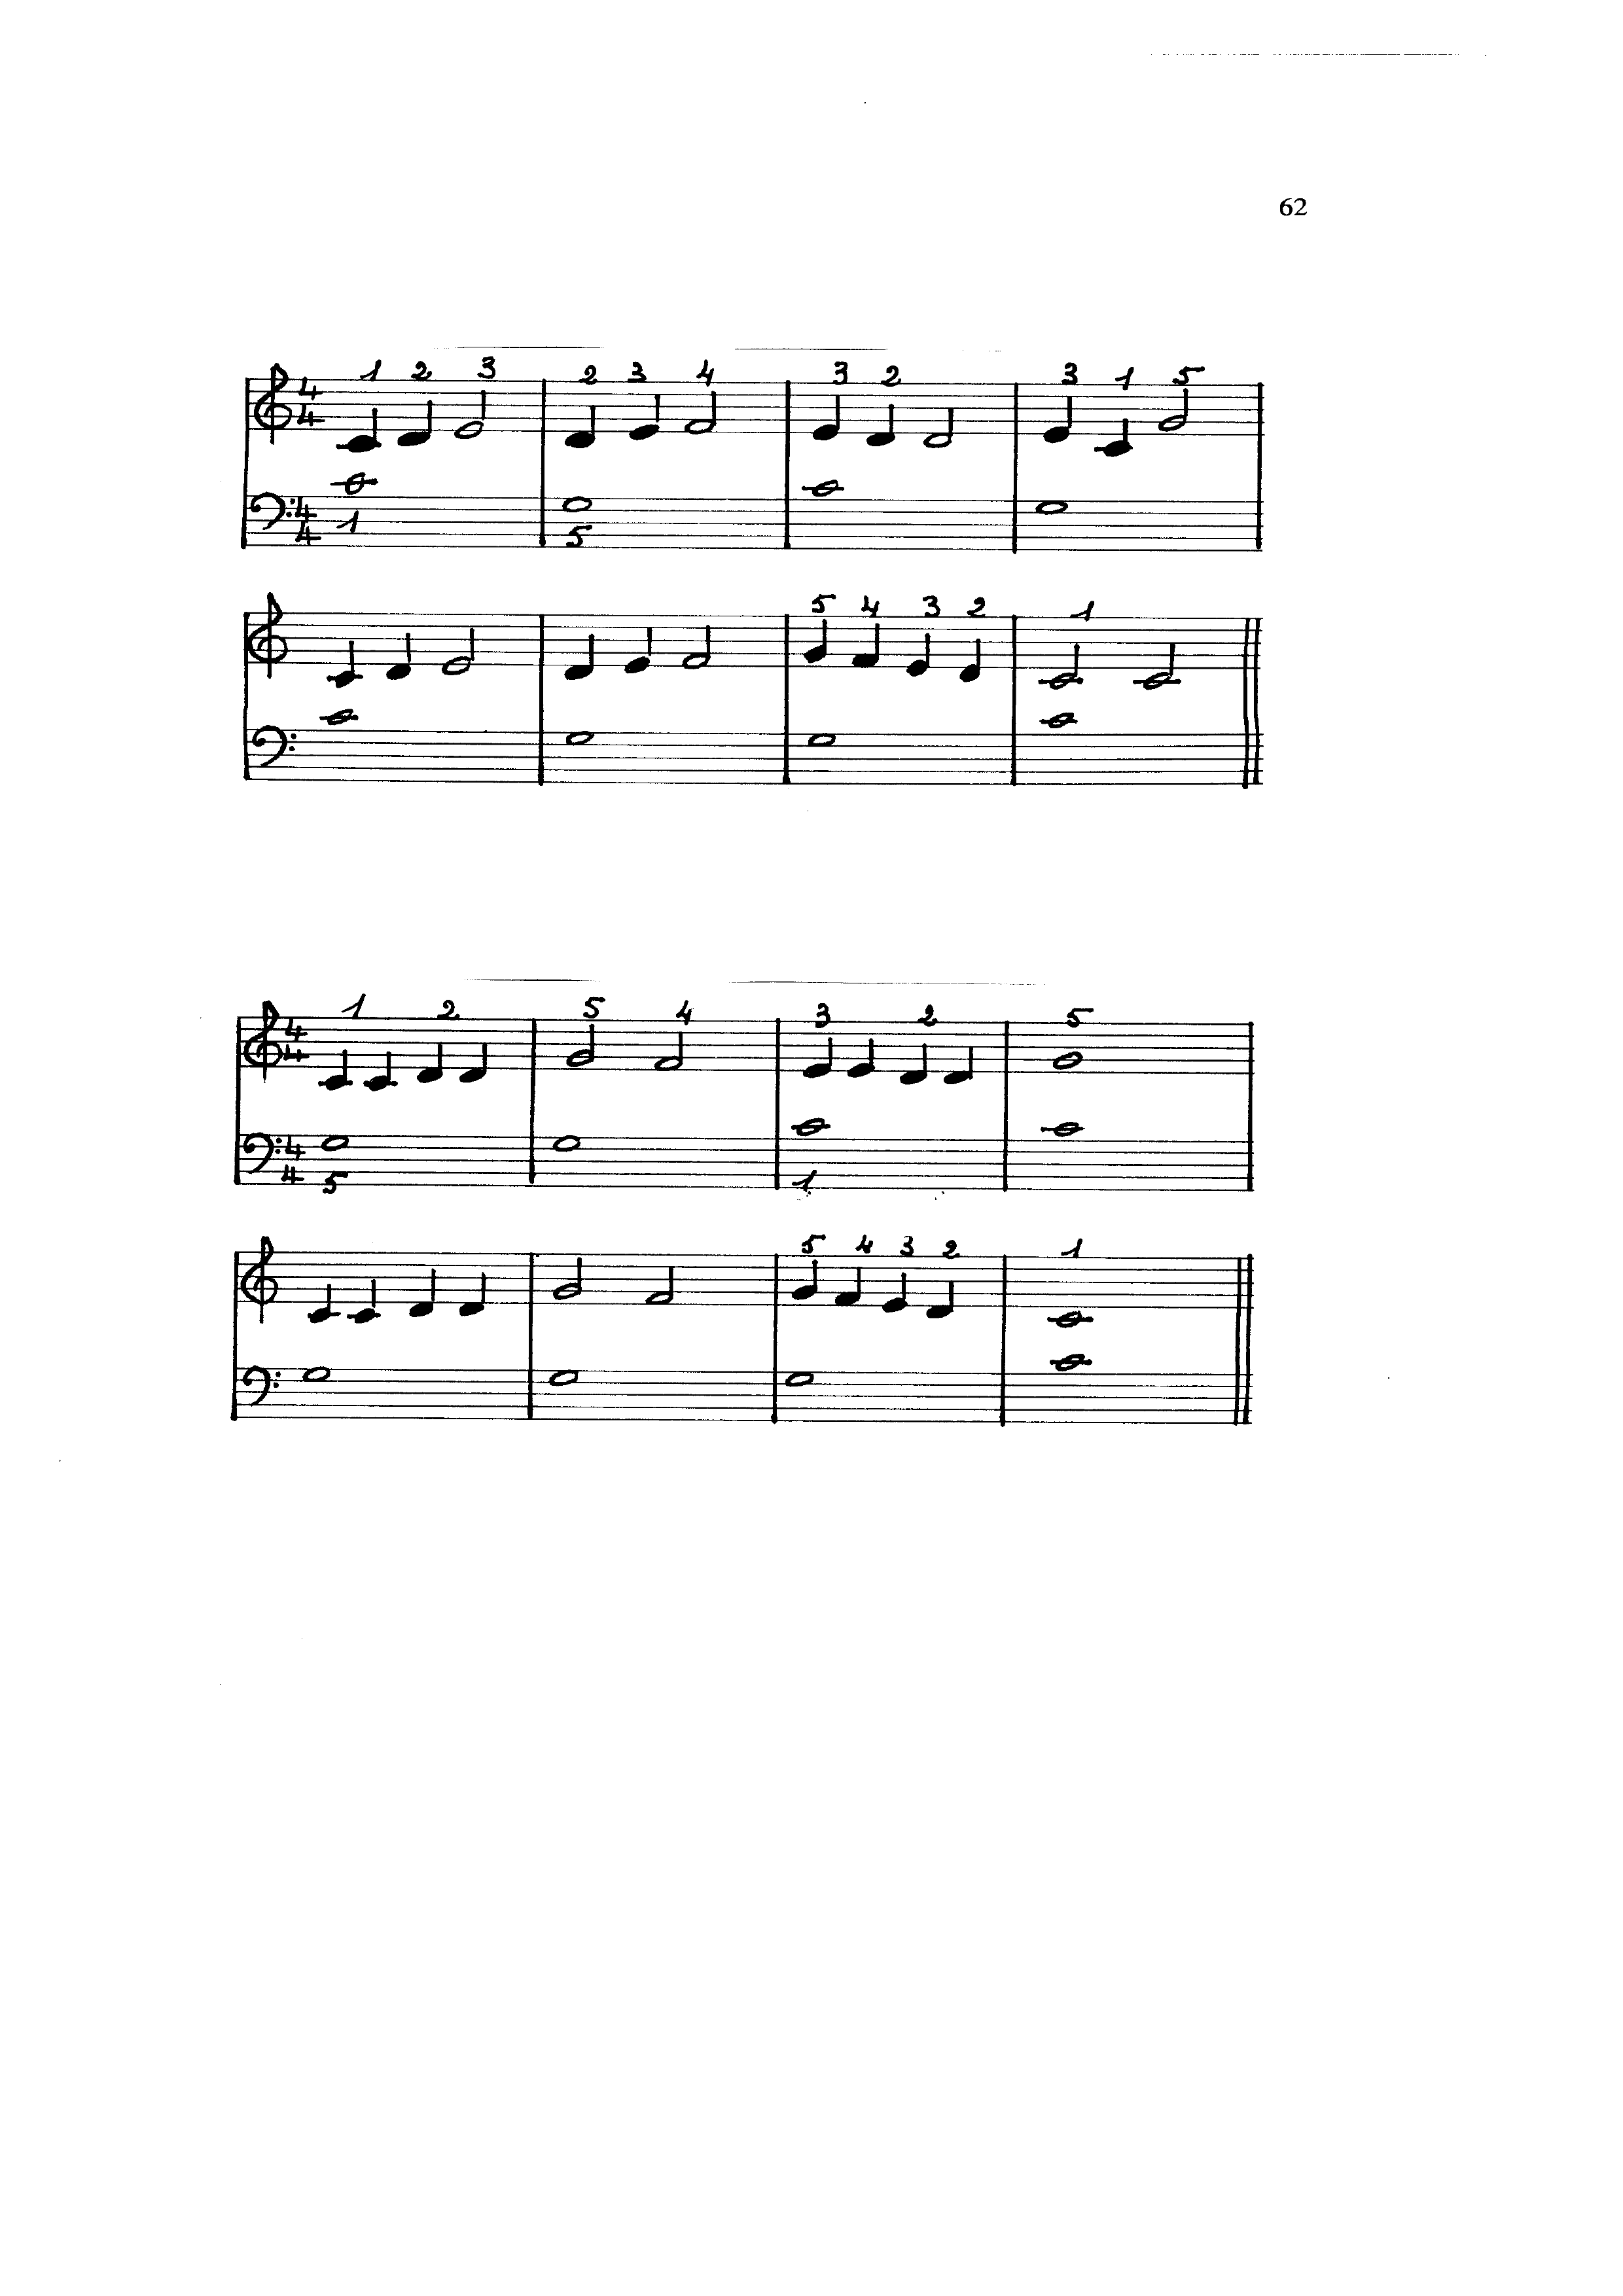 62
1 2 3 2 3 4 3 2 3 1 5
4
4
4 1
4 5
5 4 3 2 1
1 2 5 4 3 2 5
4
4
4
4 5 1
5 4 3 2 1